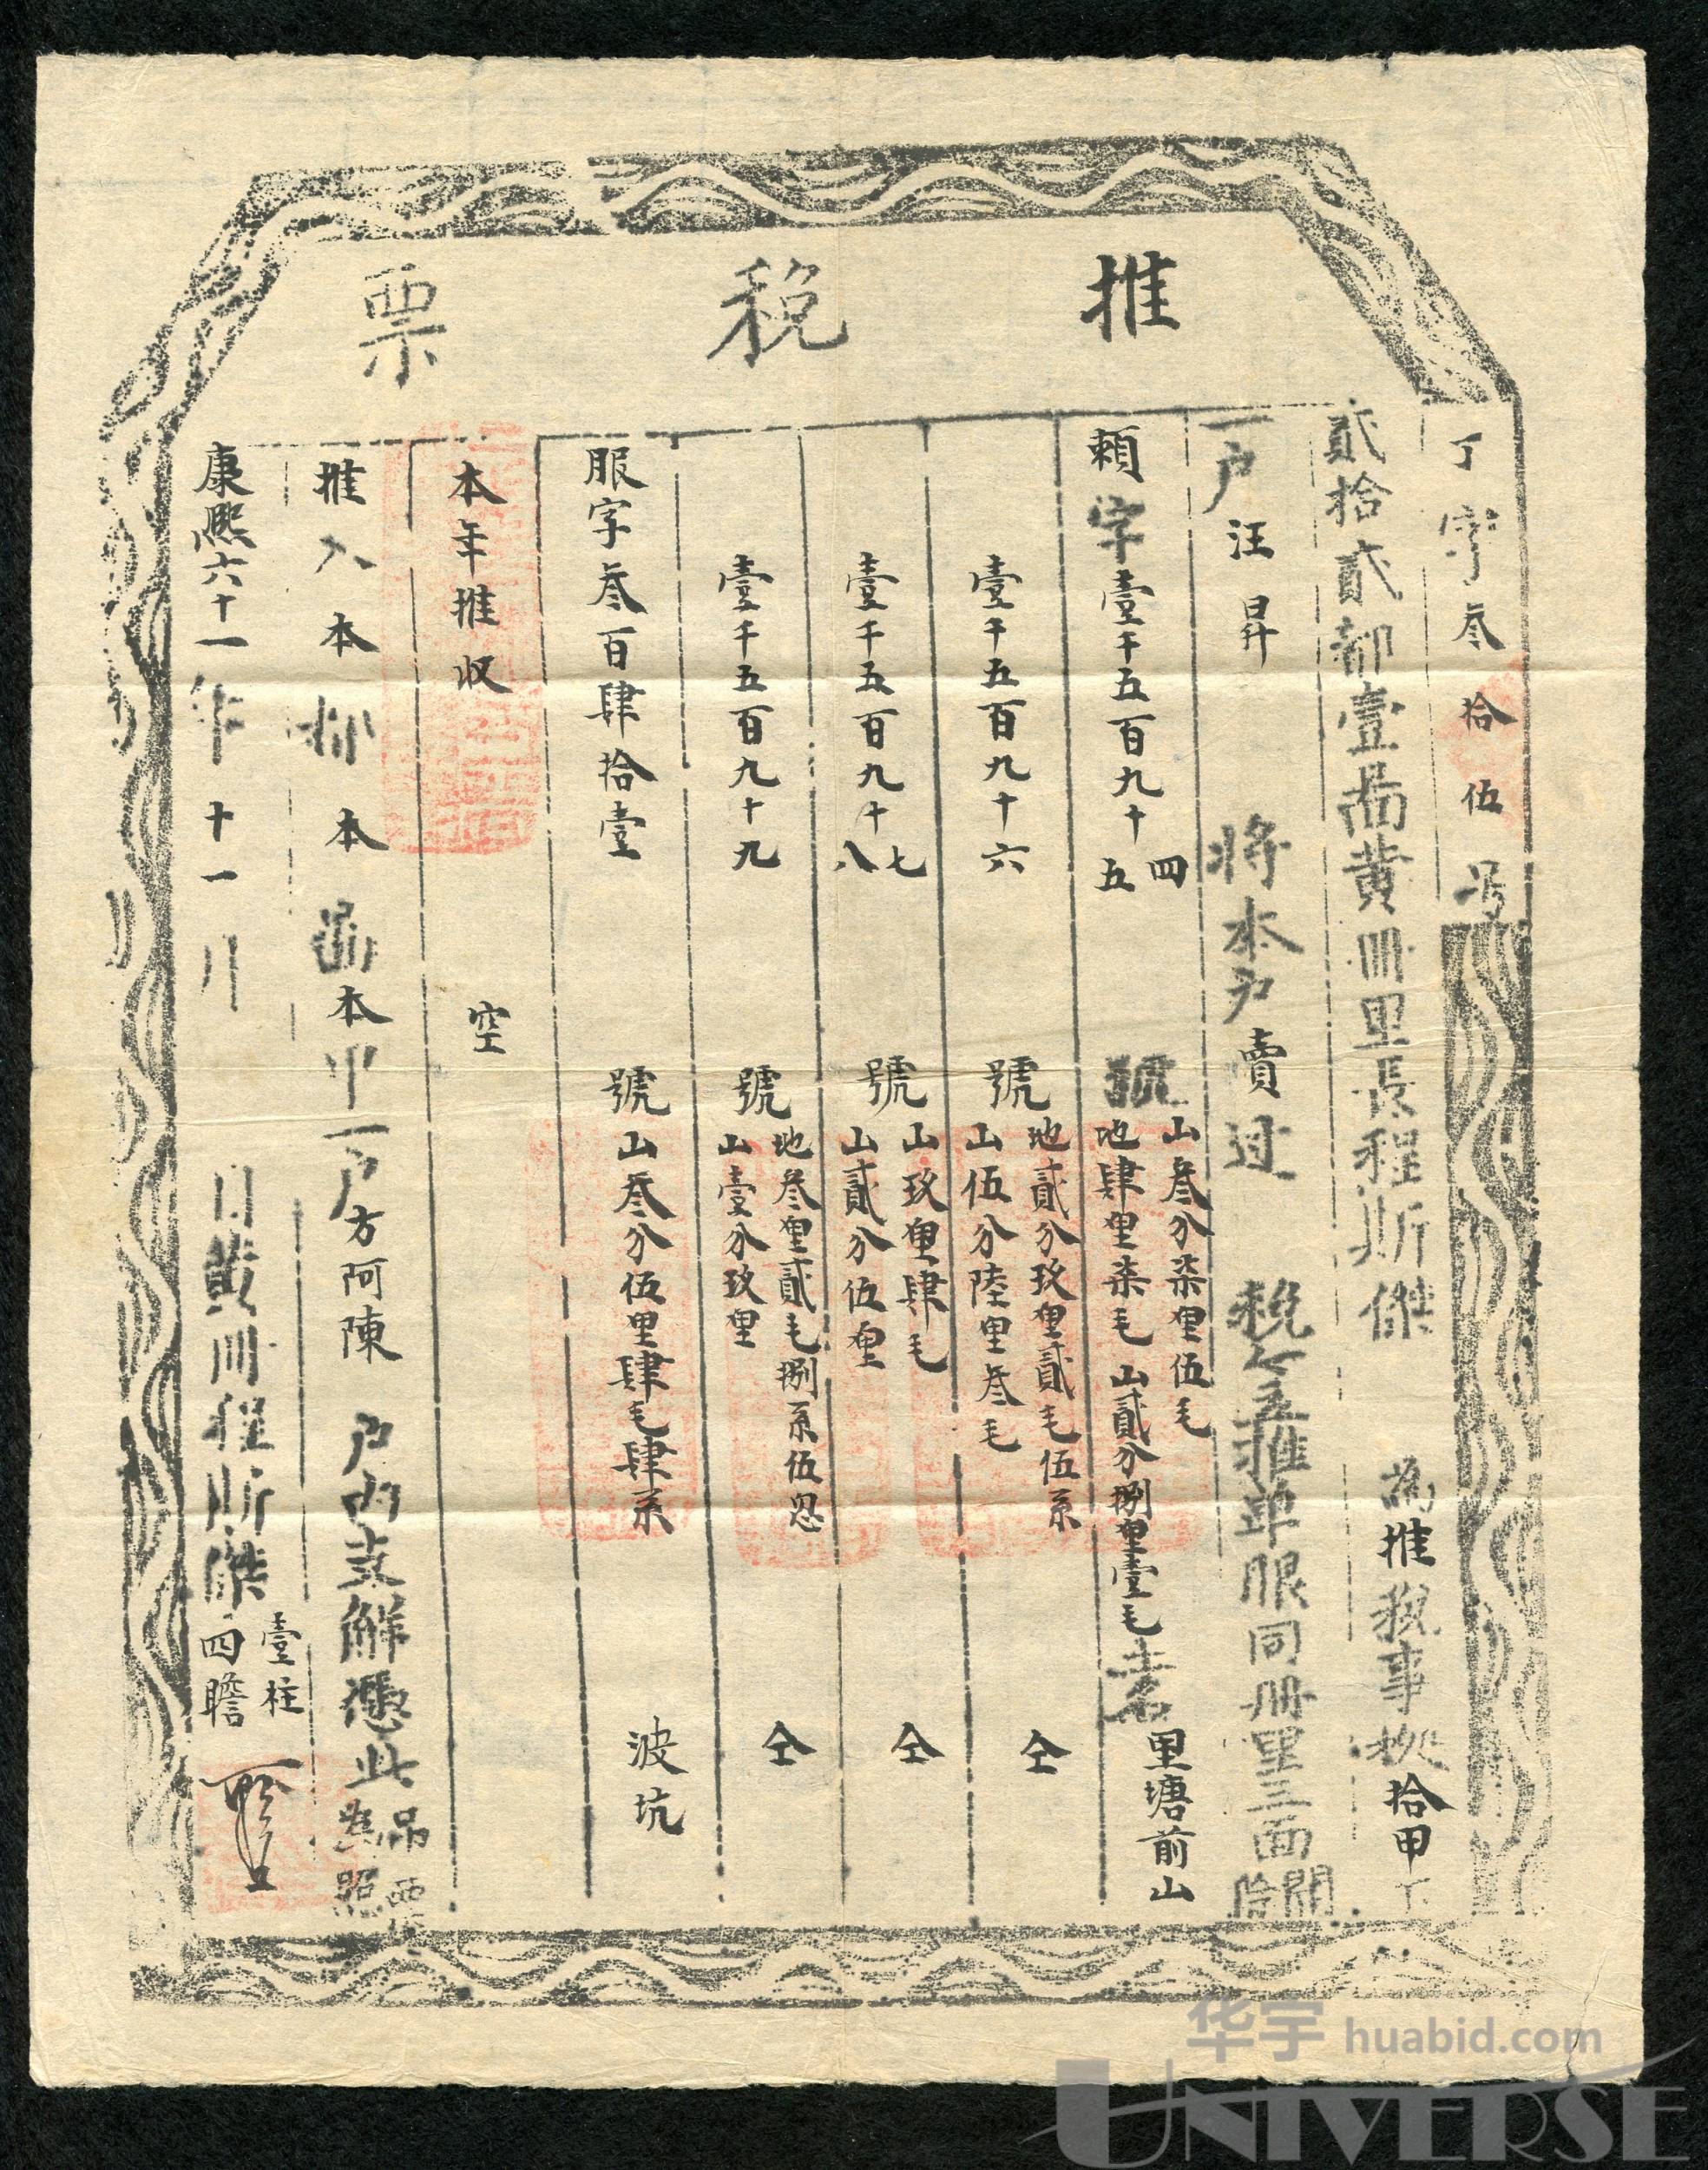 推稅票
丁字叁拾伍号
貳拾貳都壹啚黄冊里長程斯傑 為推稅事拠拾甲丁
一户汪昇 將本户賣过 稅今立推单眼同冊里三面開
賴字壹千五百九十四五 號 山叁分柒里伍毛 地肆里柒毛 山貳分捌里壹毛 土名 里塘前山
壹千五百九十六 號 地貳分玖里貳毛伍系 山伍分陸里叁毛 仝
壹千五百九十七八 號 山玖里肆毛 山貳分伍里 仝
壹千五百九十九 號 地叁里貳毛捌系伍忽 山壹分玖里 仝
服字叁百肆拾壹 號 山叁分伍里肆毛肆系 波坑
本年推収 空
推入本都本啚本甲一户方阿陳 户内支解憑此 為照
康熙六十一年十一月 日黄冊程斯傑 壹柱 四瞻
华宇 huabid.com
UNIVERSE